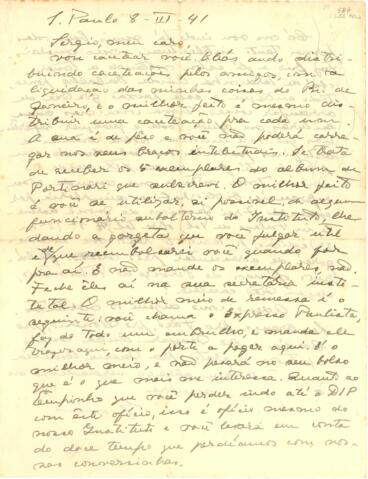 S. Paulo 8-III-41
Sergio, meu caro
vou cacetear você. Aliás ando distri-
buindo caceteações pelos amigos, com a
liquidação das minhas coisas do Rio de
Janeiro, e o melhor jeito é mesmo dis-
tribuir uma caceteação pra cada um.
A sua é de peso e você não poderá carre-
gar nos seus braços intelectuais. Se trata
de receber os 5 exemplares do album de
Portinari que subscrevi. O melhor jeito
é você se utilizar, si possivel, de algum
funcionário subalterno do Instituto, lhe
dando a gorgeta que você julgar util
e que reembolsarei você quando for
pra aí. E não mande os exemplares, não.
Feche eles aí na sua secretária insti-
tutal. O milhor meio de remessa é o
seguinte: você chama o Expresso Paulista,
faz de todo um embrulho, e manda ele
trazer aqui, com o porte a pagar aqui. É o
milhor meio, e não pesará no seu bolso
que é o que mais me interessa. Quanto ao
tempinho que você perder indo até o DIP
com este ofício, isso é ofício mesmo do
nosso Instituto e você levará em conta
do doce tempo que perdíamos com nos-
sas conversinhas.